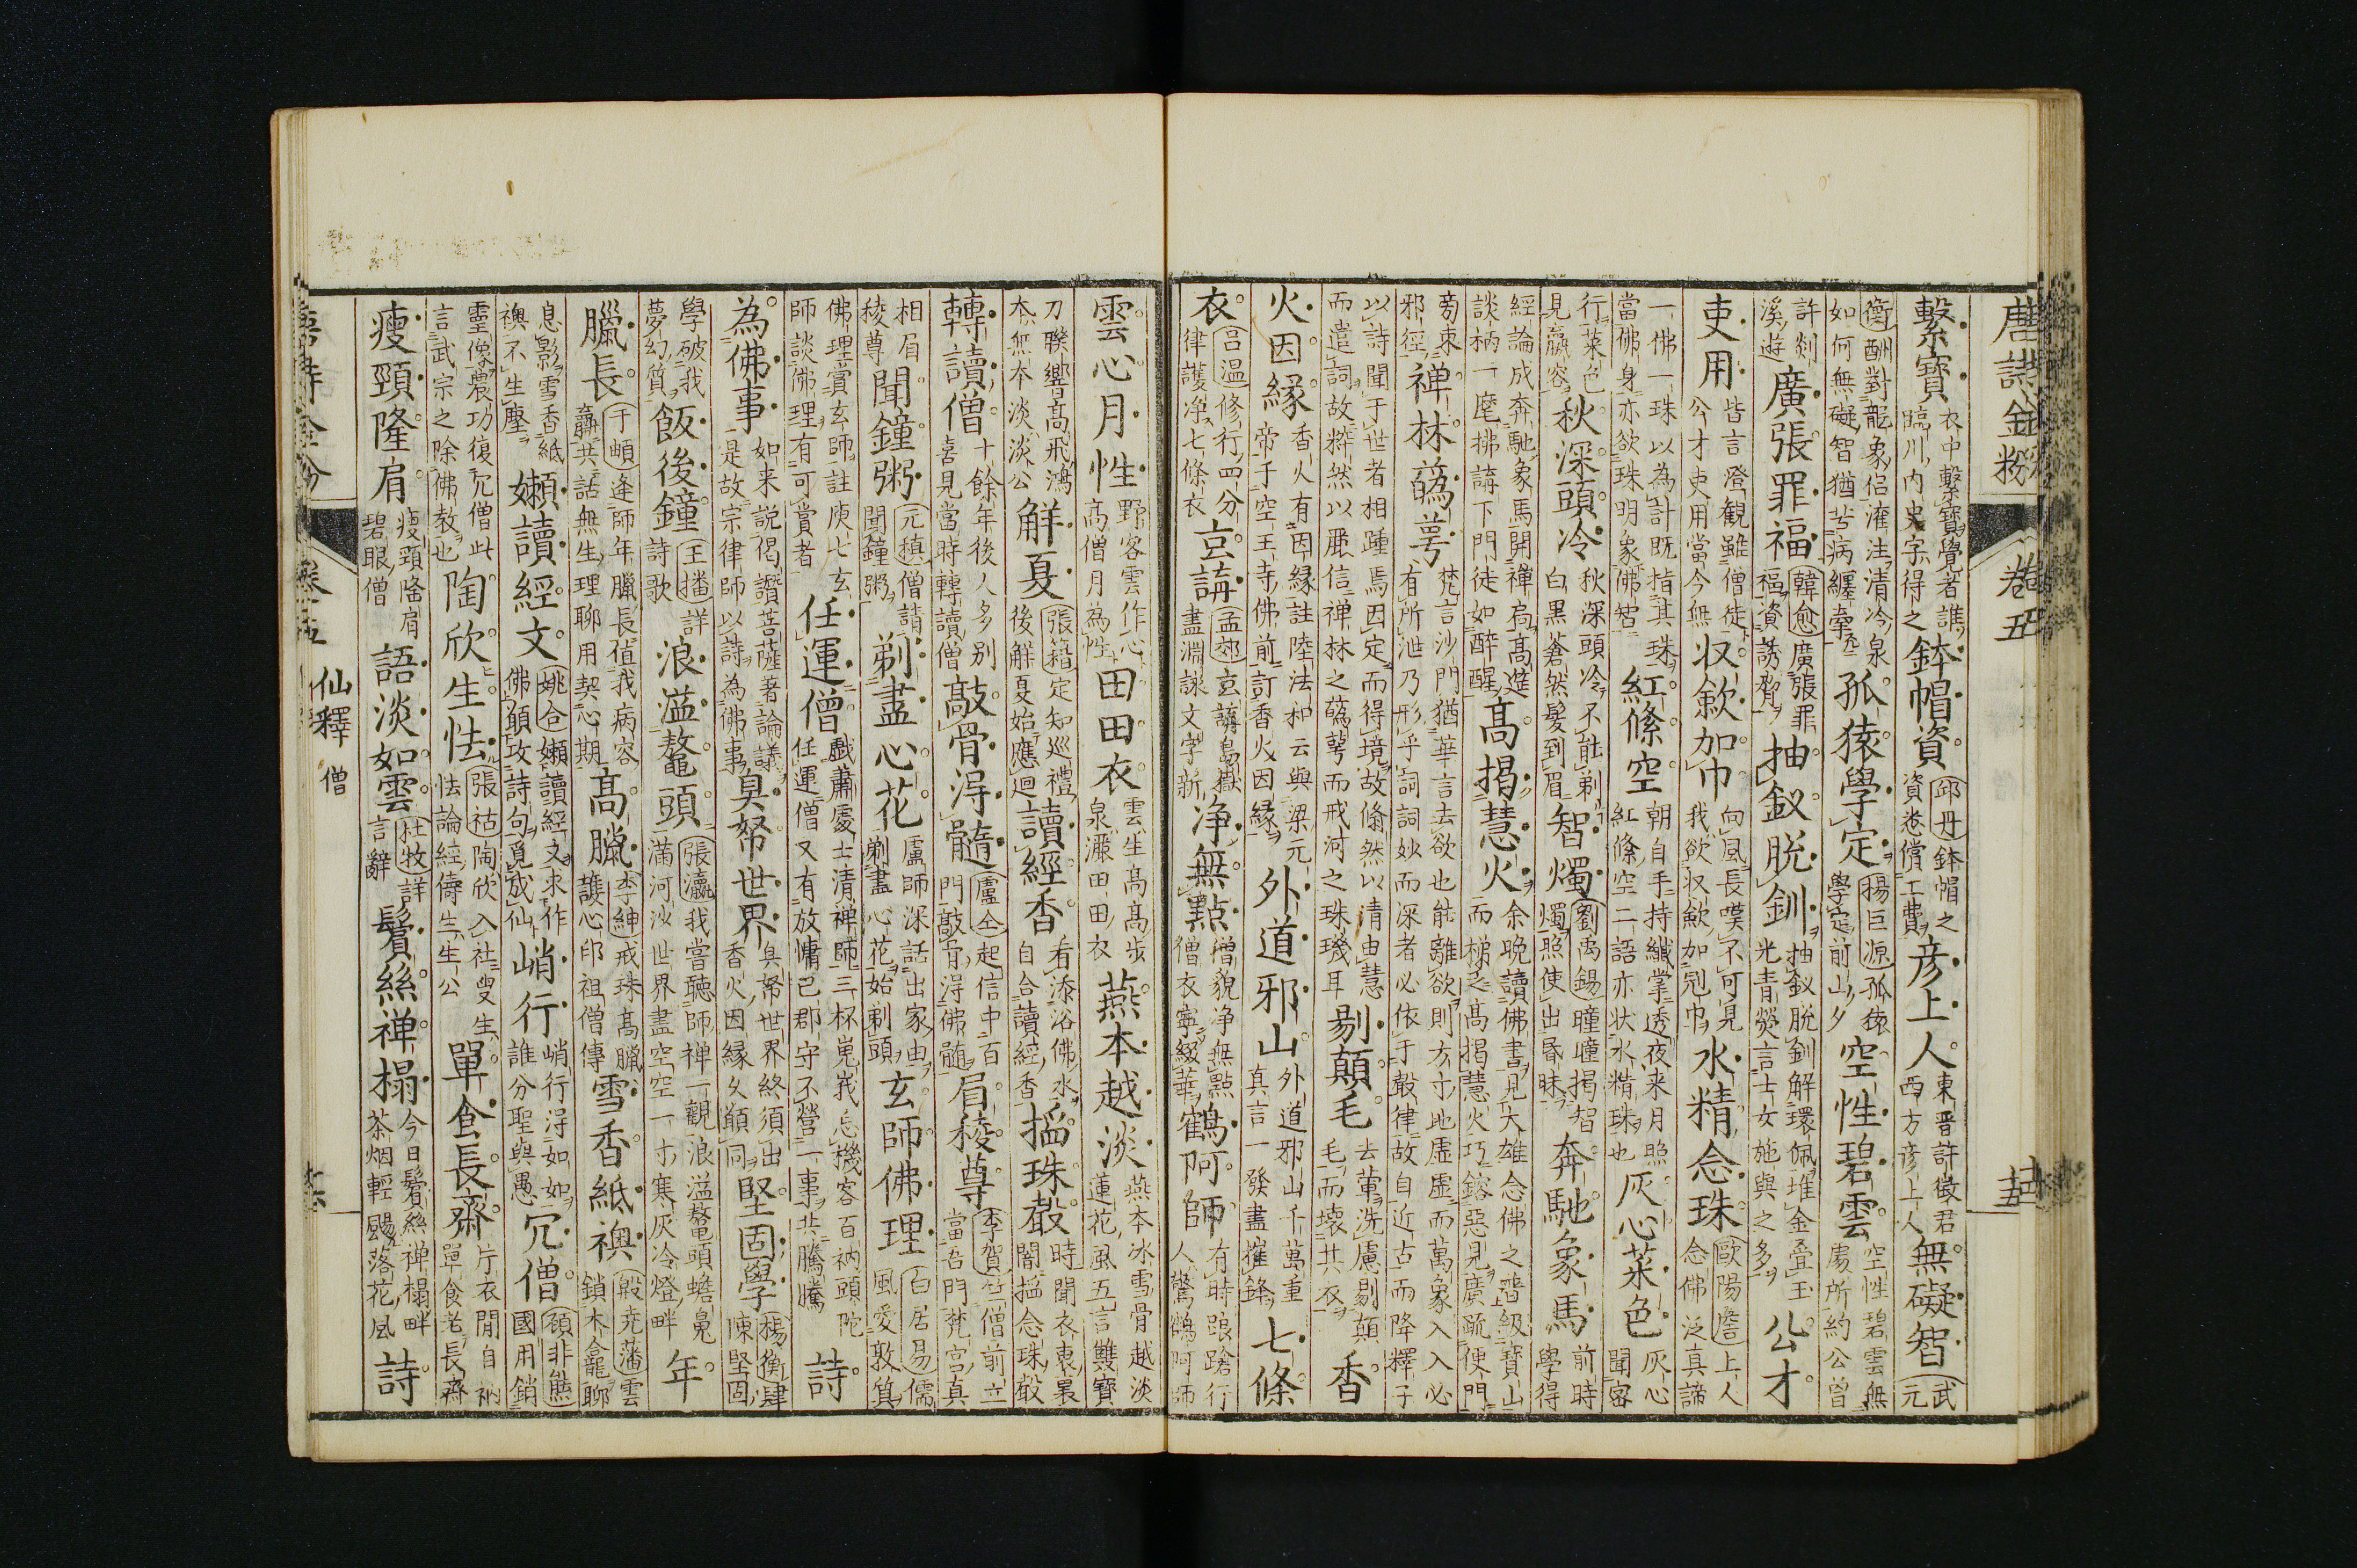 唐詩金粉 卷五
繫寶 衣中繫寶覺者誰 臨川內史字得之 鉢帽資 邱丹 鉢帽之資卷償工費 彦上人 東晉許徵君 西方彦上人 無礙智 武元
衡 酬對龍象侶灌注清冷泉 如何無礙智猶苦病纏牽 孤猿學定 楊巨源 孤猿學定前山夕 空性碧雲 空性碧雲無處所約公曾
許剡溪遊 廣張罪福 韓愈 廣張罪福資誘脅 抽釵脫釧 抽釵脫釧解環佩堆金疊玉光青熒言士女施與之多 公才
吏用 皆言澄觀雖僧徒公才吏用當今無 收歛加巾 向風長嘆不可見我欲收歛加冠巾 水精念珠 歐陽詹 上人念佛泛真諦
一佛一珠以為計既指其珠當佛身亦欲珠明象佛智 紅絛空 朝自手持纖掌透夜来月照紅絛空二語亦状水精珠也 灰心菜色 灰心聞客
行菜色見羸容 秋深頭冷 秋深頭冷不能剃白黑蒼然髮到眉 智燭 劉禹錫 曈曈揭智燭照使出昏昧 奔馳象馬 前時學得
經論成奔馳象馬開禪扃高筵談柄一麾拂講下門徒如醉醒 高揭慧火 余晚讀佛書見大雄念佛之普級寶山而梯之高揭慧火巧鎔惡見廣疏便門
旁束邪徑 禅林蘤萼 梵言沙門猶華言去欲也能離欲則方寸地虛虛而萬象入入必有所泄乃形乎詞詞妙而深者必依于聲律故自近古而降釋子
以詩聞于世者相踵焉因定而得境故翛然以清由慧而遣詞故粹然以麗信禅林之蘤萼而戒河之珠璣耳 剔顛毛 去葷洗慮剔顛毛而壊其衣 香
火因縁 香火有因縁註陸法和云與梁元帝于空王寺佛前訂香火因縁 外道邪山 外道邪山千萬重真言一發盡摧鋒 七條
衣 呂温 修行四分律護净七條衣 玄講 孟郊 玄講島嶽盡淵詠文字新 净無點 僧貌净無點僧衣寧綴華 鶴阿師 有時踉蹌行人驚鶴阿師
雲心月性 野客雲作心高僧月為性 田田衣 雲生高高步泉灑田田衣 燕本越淡 燕本冰雪骨越淡蓮花風五言雙寶
刀聯響高飛鴻本無本淡淡公 觧夏 張籍 定知巡禮後觧夏始應迴 讀經香 看添浴佛水自合讀經香 搯珠聲 時聞衣裏闇搯念珠聲
轉讀僧 十餘年後人多别喜見當時轉讀僧 敲骨得髓 盧仝 起信中百門敲骨得佛髓 眉稜尊 李賀 竺僧前立當吾門梵宫真
相眉稜尊 聞鐘粥 元稹 僧請聞鐘粥 剃盡心花 盧師深話出家由剃盡心花始剃頭 玄師佛理 白居易 儒風愛敦質
佛理賞玄師註庾七玄師談佛理有可賞者 任運僧 戲蕭處士清禅師三杯嵬峩忘機客百衲頭陀任運僧又有放慵巴郡守不營一事共騰騰 詩
為佛事 如来説偈讃菩薩著論議是故宗律師以詩為佛事 臭帑世界 臭帑世界終須出香火因縁久願同 堅固學 楊衡 肄陳堅固
學破我夢幻質 飯後鐘 王播 詳詩歌 浪溢鼇頭 張瀛 我嘗聽師禅一觀浪溢鼇頭蟾𩲸滿河沙世界盡空空一寸寒灰冷燈畔 年
臘長 于頔 逢師年臘長值我病容羸共話無生理聊用契心期 高臘 李紳 戒珠高臘護心印祖僧傳 雪香紙襖 殷尭藩 雲鎖木龕聊
息影雪香紙襖不生塵 嬾讀經文 姚合 嬾讀經文求作佛願攻詩句覓成仙 峭行 峭行得如如誰分聖與愚 冗僧 顧非熊 國用銷
靈像農功復冗僧此言武宗之除佛教也 陶欣生怯 張祜 陶欣入社叟生怯論經儔生生公 單食長齋 片衣閒自衲單食老長齋
瘦頸隆肩 瘦頸隆肩碧眼僧 語淡如雲 杜牧 詳言辭 鬢絲禅榻 今日鬢絲禅榻畔茶烟輕颺落花風 詩
仙釋 僧